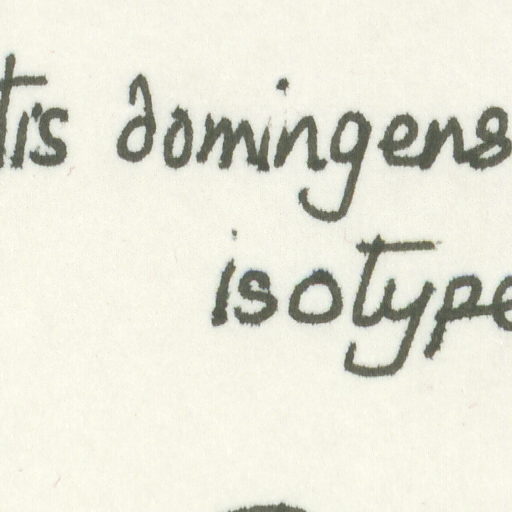 tis domingens
isotype